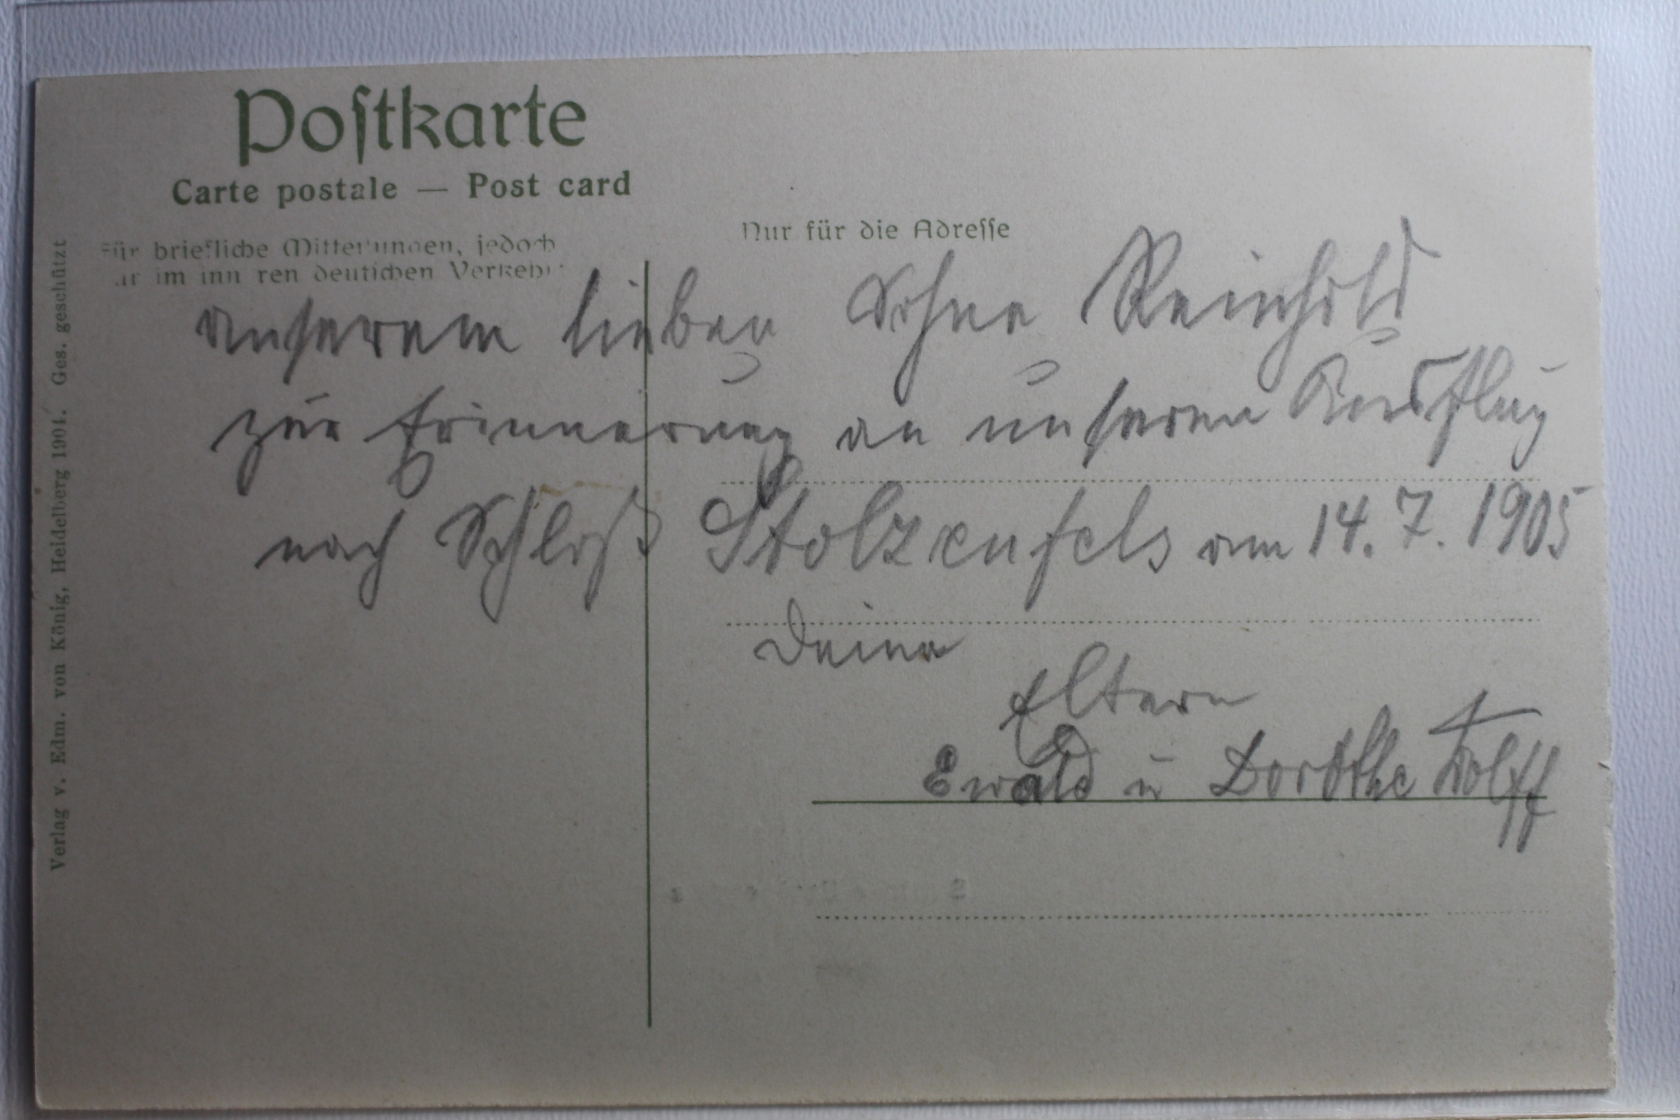 Postkarte
Carte postale — Post card
Für briefliche Mitteilungen, jedoch
nur im inneren deutschen Verkehr
Nur für die Adresse
Unserem lieben Sohne Reinhold
zur Erinnerung an unseren Ausflug
nach Schloß Stolzenfels am 14. 7. 1905
Deine
Eltern
Ewald u Dorothe Wolff
Verlag v. Edm. von König, Heidelberg 1901. Ges. geschützt